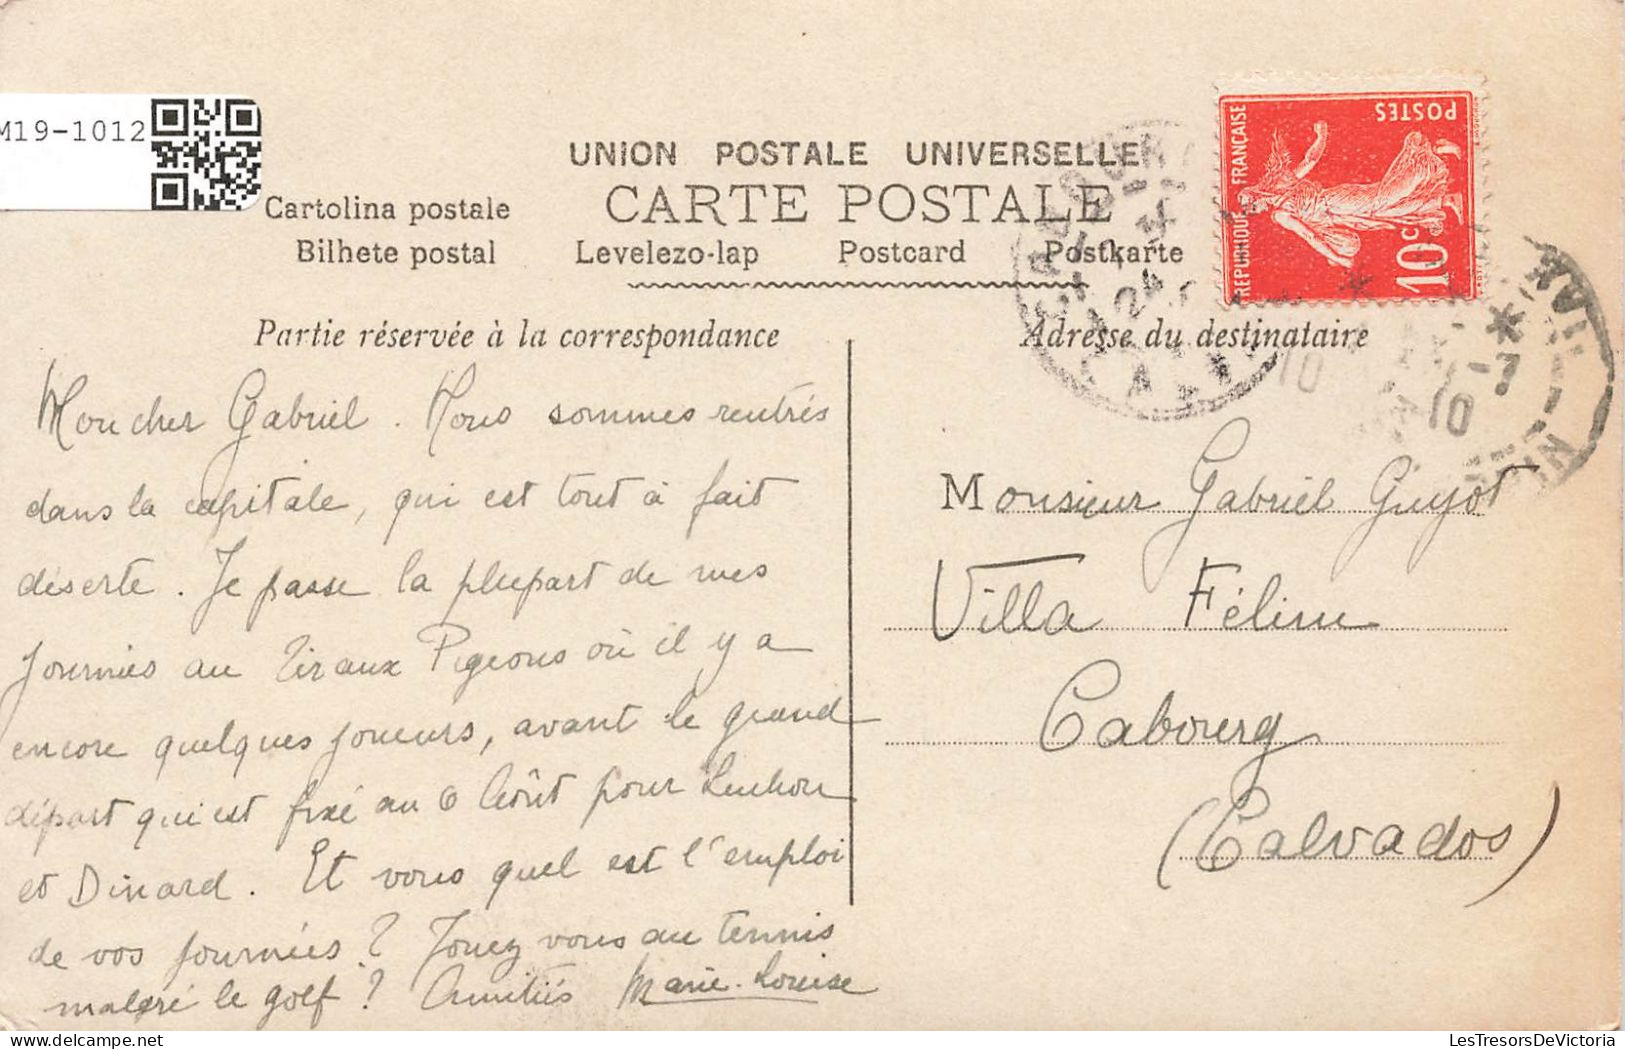 M19-1012
UNION POSTALE UNIVERSELLE
CARTE POSTALE
Cartolina postale
Bilhete postal Levelezo-lap Postcard Postkarte
Partie réservée à la correspondance
Adresse du destinataire
REPUBLIQUE FRANÇAISE
POSTES
10 c
10
10
Mon cher Gabriel. Nous sommes rentrés
dans la capitale, qui est tout à fait
déserte. Je passe la plupart de mes
journées au Tir aux Pigeons où il y a
encore quelques joueurs, avant le grand
départ qui est fixé au 6 Août pour Luchon
et Dinard. Et vous quel est l'emploi
de vos journées? Jouez vous au tennis
malgré le golf? Amitiés Marie-Louise
Monsieur Gabriel Guyot
Villa Féline
Cabourg
(Calvados)
LesTresorsDeVictoria